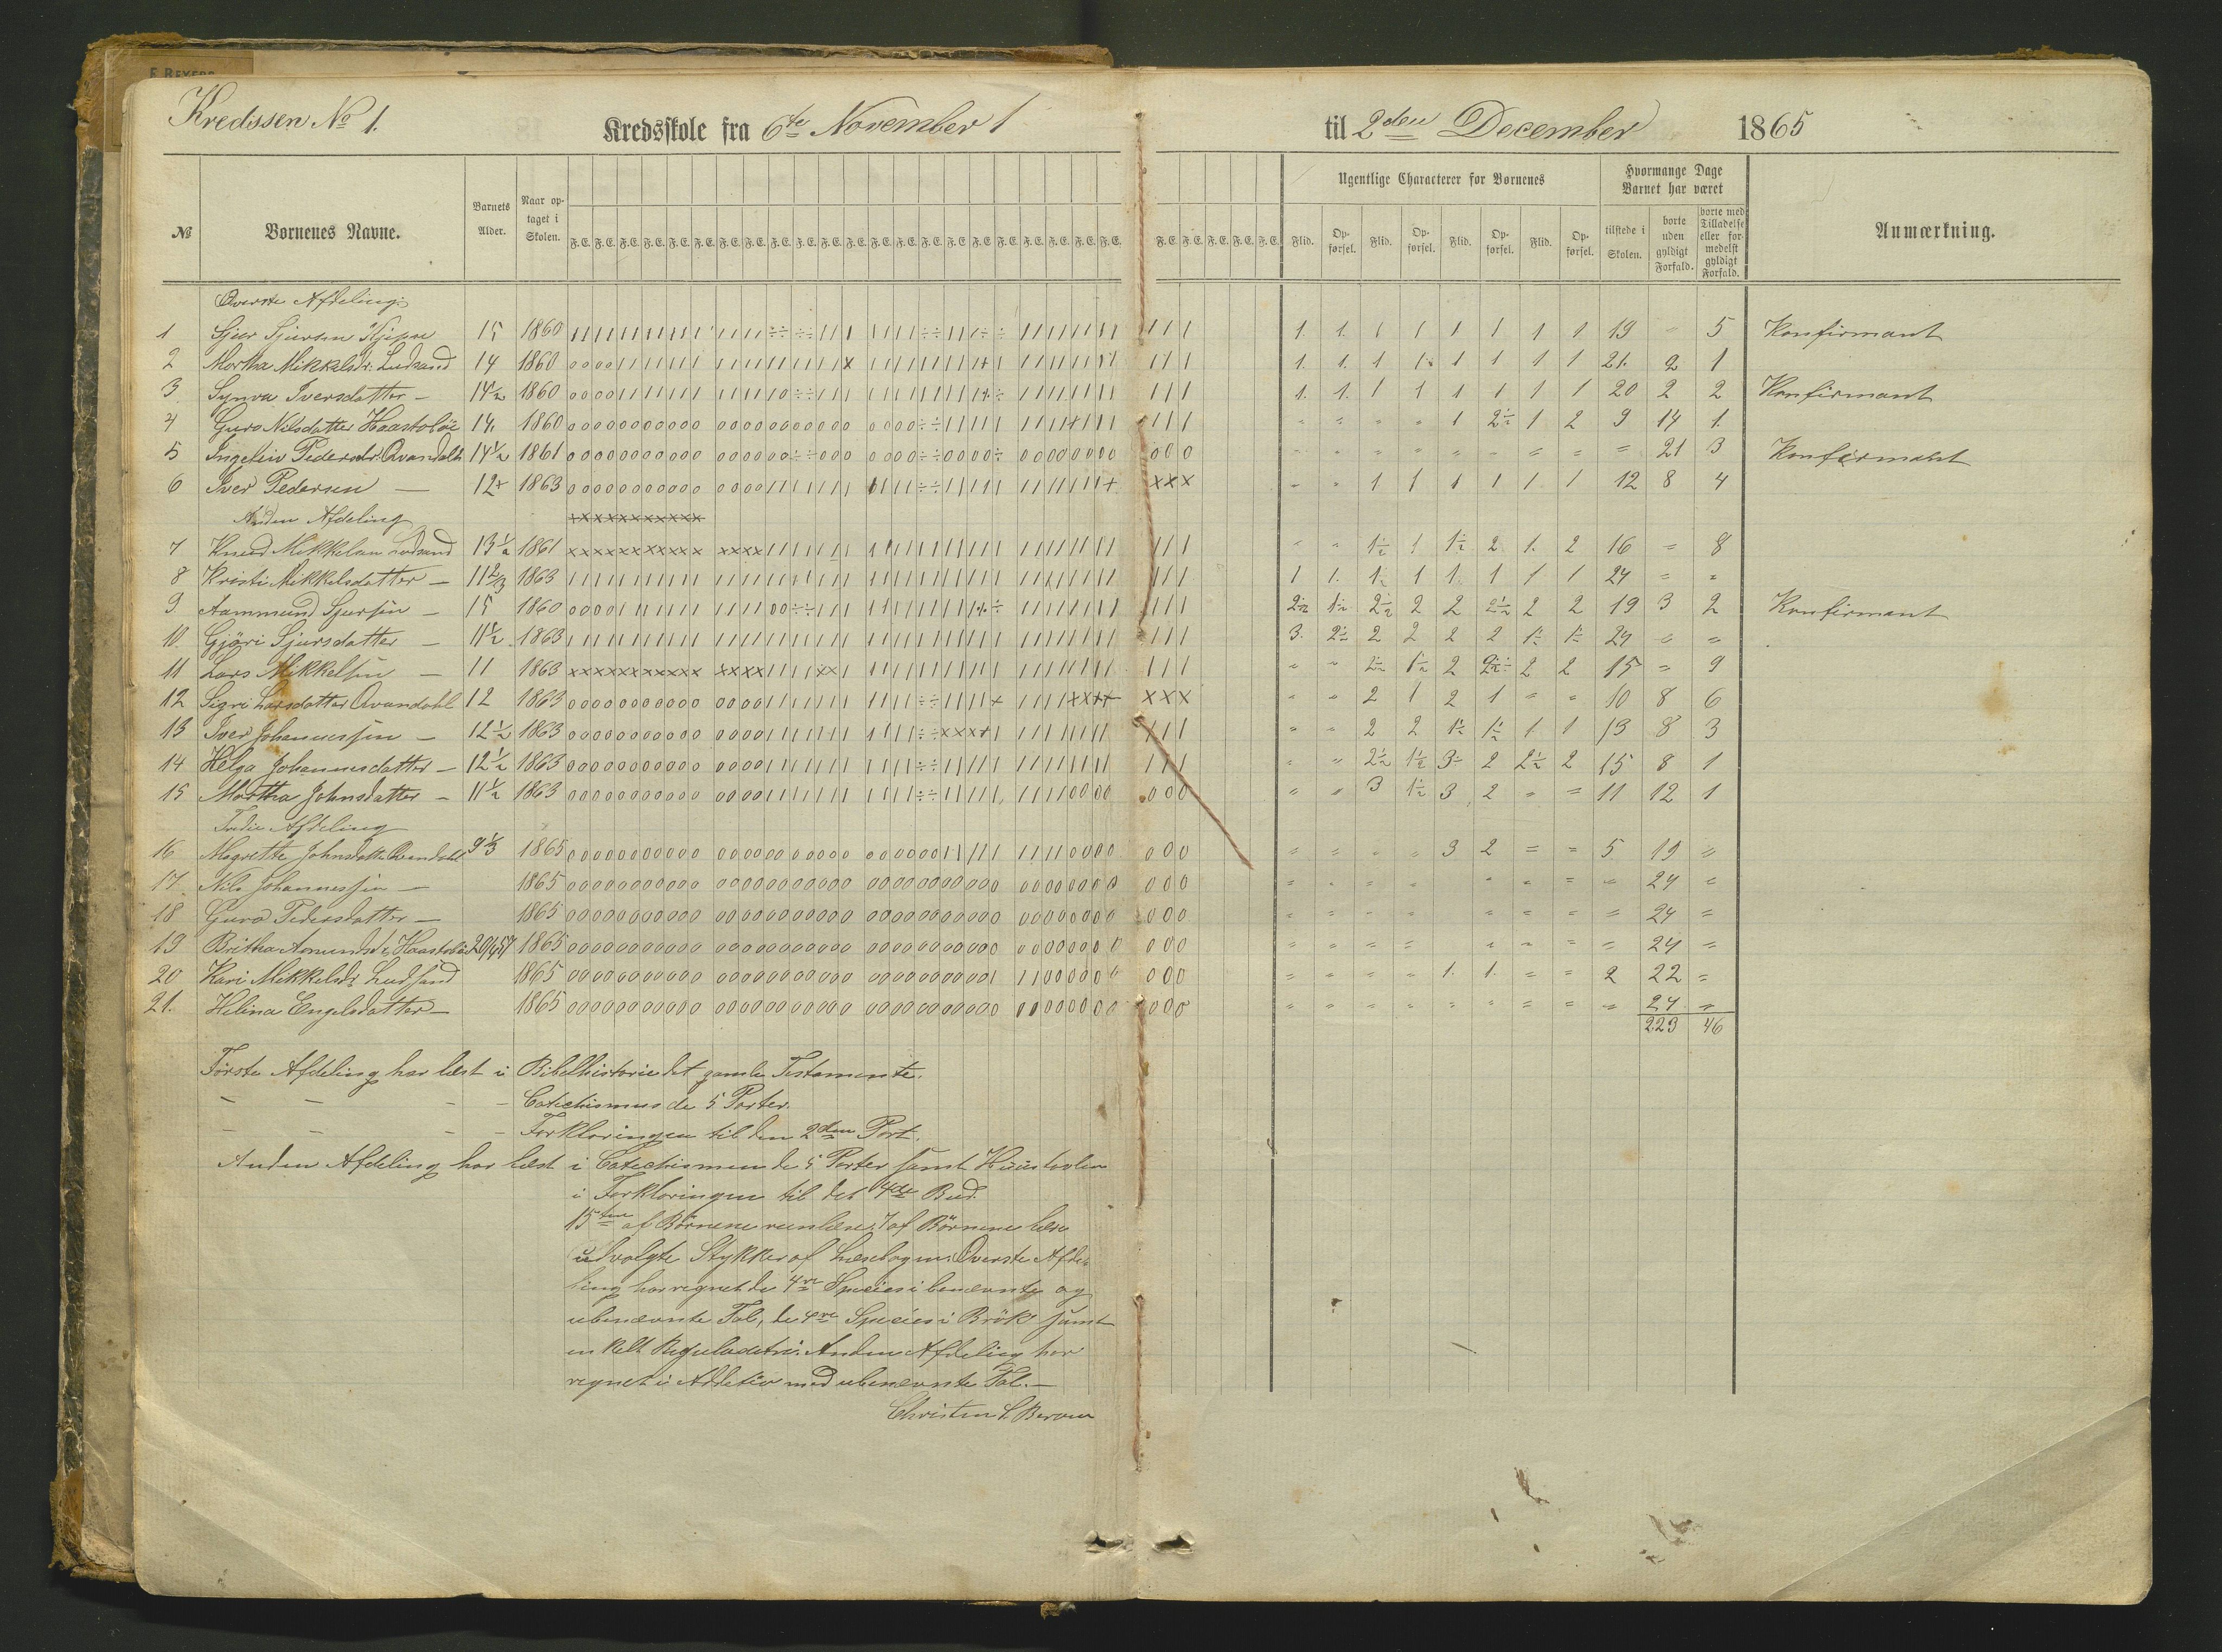 F. BEYERS
Kredssen No 1.
Kredsskole fra 6te November 1
til 2den December 1865
No
Børnenes Navne.
Barnets Alder.
Naar optaget i Skolen.
F. E. F. E. F. E. F. E. F. E. F. E. F. E. F. E. F. E. F. E. F. E. F. E. F. E. F. E. F. E. F. E. F. E. F. E. F. E. F. E. F. E. F. E.
F. E. F. E. F. E. F. E. F. E.
Ugentlige Characterer for Børnenes
Flid. Opførsel. Flid. Opførsel. Flid. Opførsel. Flid. Opførsel.
Hvormange Dage Barnet har været
tilstede i Skolen.
borte uden gyldigt Forfald.
borte med Tilladelse eller formedelst gyldigt Forfald.
Anmærkning.
Øverste Afdeling
1 Sjur Sjursen 15 1860 1. 1. 1 1 1 1 1 1 19 - 5 Konfirmant
2 Martha Mikkelsdr. Ludsand 14 1860 1. 1. 1 1 1 1 1 1 21. 2 1
3 Synva Iversdatter - 14½ 1860 1. 1. 1 1 1 1 1 1 20 2 2 Konfirmant
4 Guro Nilsdatter Haastobøe 14. 1860 " " " " 1 2½ 1 2 9 14 1.
5 Ingeleiv Pedersdr. Qvandahl 14½ 1861 " " " " " " " " = 21 3 Konfirmant
6 Iver Pedersen - 12 1863 " " 1 1 1 1 1 1 12 8 4
Anden Afdeling
7 Knud Mikkelsen Ludsand 13½ 1861 " " 1½ 1 1½ 2 1. 2 16 = 8
8 Kristi Mikkelsdatter - 11⅔ 1863 1 1. 1½ 1 1. 1 1 1 24 = "
9 Aammund Sjursen - 15 1860 2½ 1½ 2½ 2 2 2½ 2 2 19 3 2 Konfirmant
10 Gjøri Sjursdatter - 11½ 1863 3. 2½ 2 2 2 2 1½ 1½ 24 " =
11 Lars Mikkelsen - 11 1863 " " 2½ 1½ 2 2½ 2 2 15 = 9
12 Sigri Larsdatter Qvandahl 12 1863 " " 2 1 2 1 " " 10 8 6
13 Iver Johannessen - 12½ 1863 " " 2 2 1½ 1½ 1 1 13 8 3
14 Helga Johannesdatter - 12½ 1863 " " 2½ 1½ 3 2 2½ 2 15 8 1
15 Martha Johnsdatter - 11½ 1863 " " 3 1½ 3 2 " = 11 12 1
Tredie Afdeling
16 Magrethe Johnsdatter Qvandahl 9⅓ 1865 " " " " 3 2 = = 5 19 "
17 Nils Johannessen - 1865 24 "
18 Guro Pedersdatter - 1865 24 =
19 Britha Amundsdr. Haastobøe 20/4 57 1865 24 =
20 Kari Mikkelsdr. Ludsand 1865 " " " " 1. 1. = = 2 22 =
21. Helina Engelsdatter - 1865 24 "
223 46
Første Afdeling har læst i Bibelhistorie det gamle Testamente.
- - - - Catechismus de 5 Parter.
- - - - Forklaringen til den 2den Part.
Anden Afdeling har læst i Catechismen de 5 Parter samt Huustavlen
i Forklaringen til det 4de Bud.
15 af Børnene 7 af Børnene læse
udvalgte Stykker af Læsebogen. Øverste Afde
ling har regnet de 4re Species i benævnte og
ubenævnte Tal, de 4re Species i Brøk samt
enkelt Reguladetri. Anden Afdeling har
regnet i Additiv med ubenævnte Tal. -
Christen L.